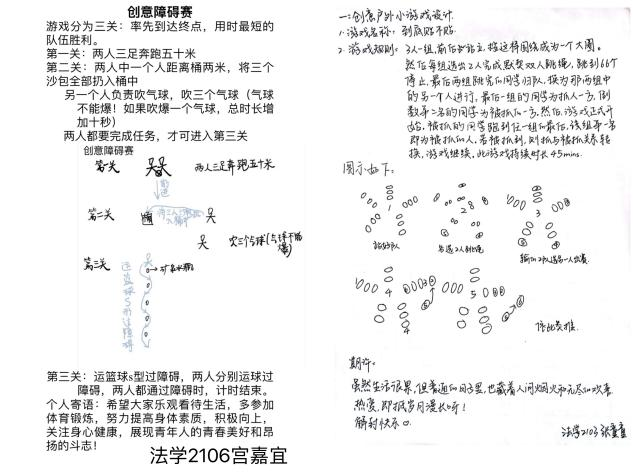 创意障碍赛
游戏分为三关：率先到达终点，用时最短的
队伍胜利。
第一关：两人三足奔跑五十米
第二关：两人中一个人距离桶两米，将三个
沙包全部扔入桶中
另一个人负责吹气球，吹三个气球（气球
不能爆！如果吹爆一个气球，总时长增
加十秒）
两人都要完成任务，才可进入第三关
创意障碍赛
第一关
两人三足奔跑五十米
前进
第二关
吹三个气球(气球不能
爆)
第三关
矿泉水瓶
运篮球S形过障碍
第三关：运篮球s型过障碍，两人分别运球过
障碍，两人都通过障碍时，计时结束。
个人寄语：希望大家乐观看待生活，多参加
体育锻炼，努力提高身体素质，积极向上，
关注身心健康，展现青年人的青春美好和昂
扬的斗志！
法学2106宫嘉宜
一：创意户外小游戏设计
1. 游戏名称：到底贴不贴
2. 游戏规则：3人一组，前后如站立，按这样围绕成为一个大圈。
然后每组选出2人完成默契双人跳绳，跳到66个
停止，最后两组跳完的同学归队，换为那两组中
的另一个人进行，最后一组的同学为抓人一方，倒
数第二名的同学为被抓的一方，然后，游戏正式开
始，被抓的同学跑到任一组和最后，该组第一名
即为被抓的人，若被抓到，则抓与被抓关系转
换，游戏继续，此游戏持续时长45mins.
图示如下：
1
2
3
站好队
另选2人跳绳
4
5
依此类推.
期许：
虽然生活很累，但普通的日子里，也藏着人间烟火和无尽的欢喜
热爱，即抵岁月漫长呀！
解封快乐
法学2103